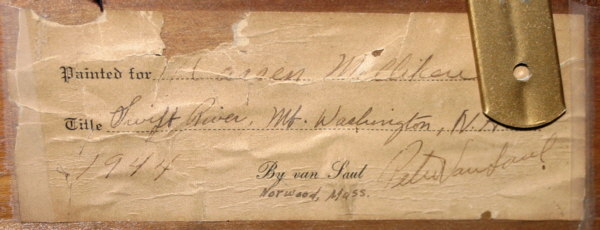 Painted for Warren Milliken
Title Swift River, Mt. Washington, N.H.
1944 By van Saul Peter Van Saul
Norwood, Mass.